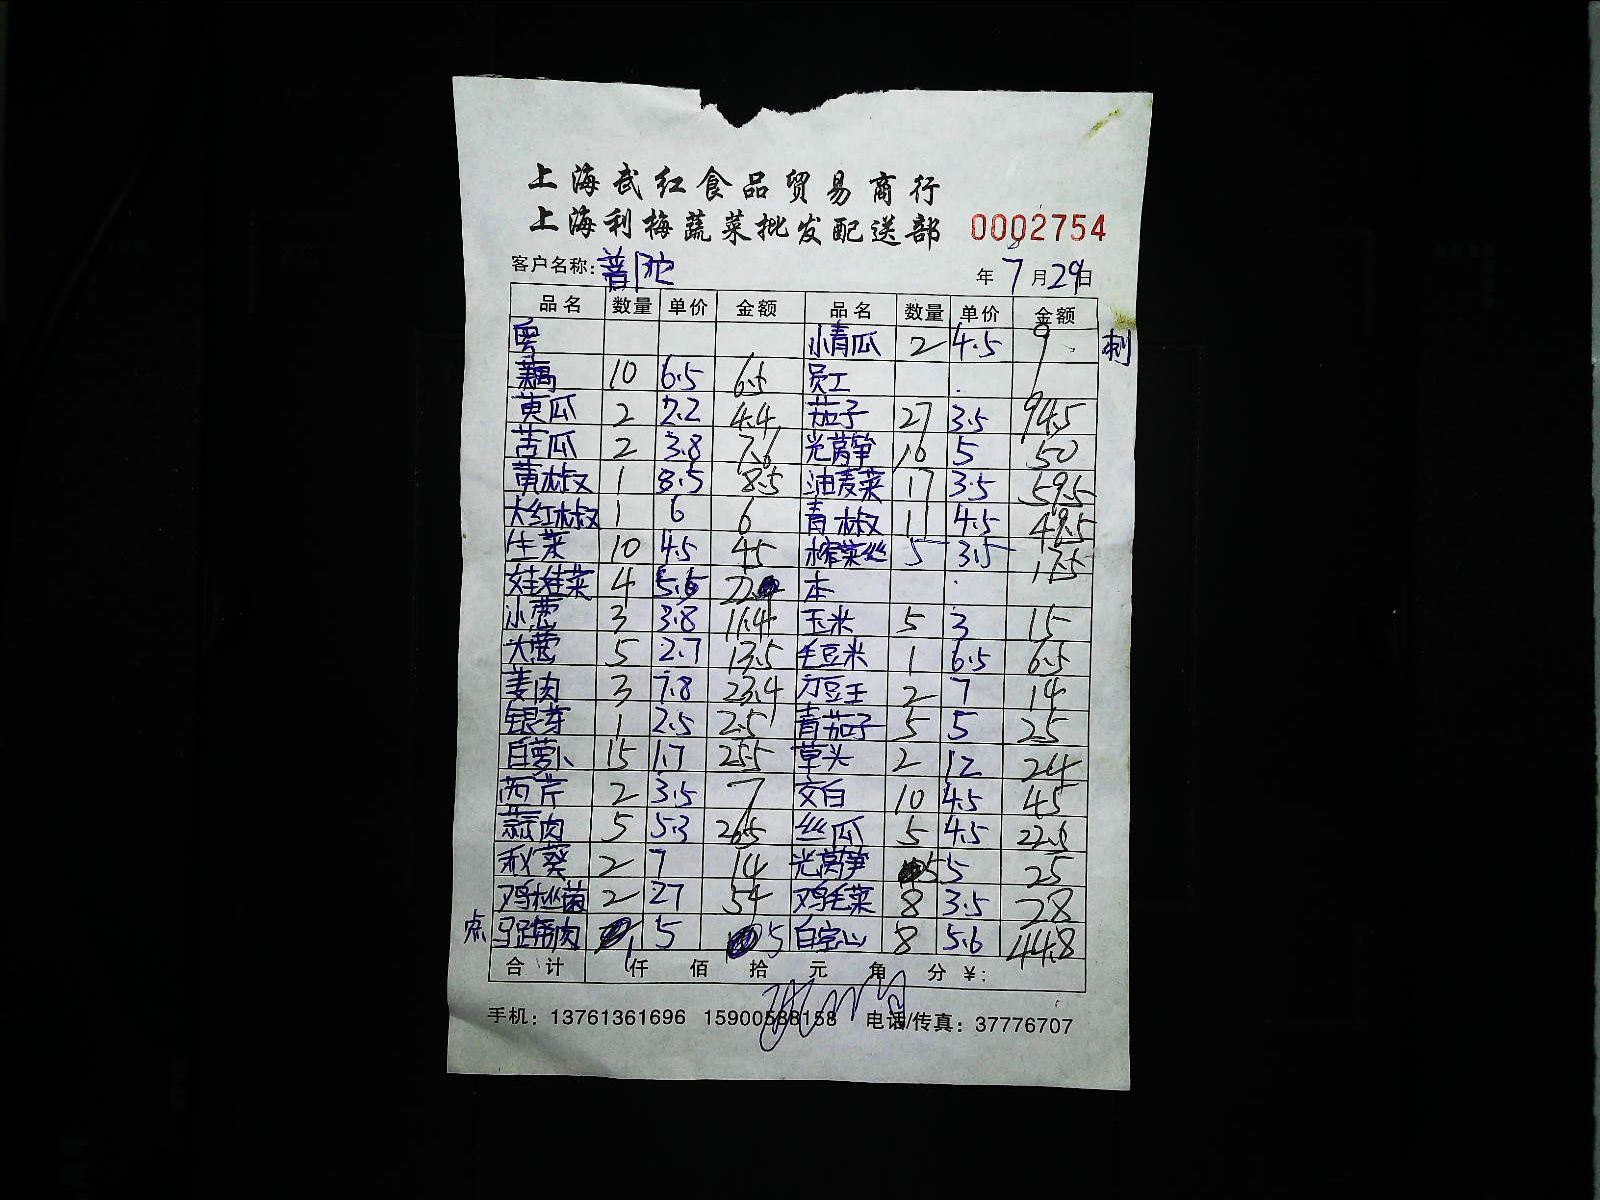 上海武红食品贸易商行
上海利梅蔬菜批发配送部 0002754
客户名称: 普陀 年 7 月 29 日
品名 数量 单价 金额 品名 数量 单价 金额
粤 小青瓜 2 4.5 9 刺
藕 10 6.5 65 员工
黄瓜 2 2.2 4.4 茄子 27 3.5 94.5
苦瓜 2 3.8 7.6 光莴笋 10 5 50
黄椒 1 8.5 8.5 油麦菜 17 3.5 59.5
大红椒 1 6 6 青椒 11 4.5 49.5
生菜 10 4.5 45 榨菜丝 5 3.5 17.5
娃娃菜 4 5.6 22. 本
小葱 3 3.8 11.4 玉米 5 3 15
大葱 5 2.7 13.5 毛豆米 1 6.5 6.5
姜肉 3 7.8 23.4 刀豆王 2 7 14
银芽 1 2.5 2.5 青茄子 5 5 25
白萝卜 15 1.7 25.5 草头 2 12 24
西芹 2 3.5 7 交白 10 4.5 45
蒜肉 5 5.3 26.5 丝瓜 5 4.5 22.5
秋葵 2 7 14 光莴笋 5 5 25
鸡枞菌 2 27 54 鸡毛菜 8 3.5 28
点 马蹄肉 1 5 5 白空心 8 5.6 44.8
合计 仟 佰 拾 元 角 分 ¥:
手机: 13761361696 15900588158 电话/传真: 37776707